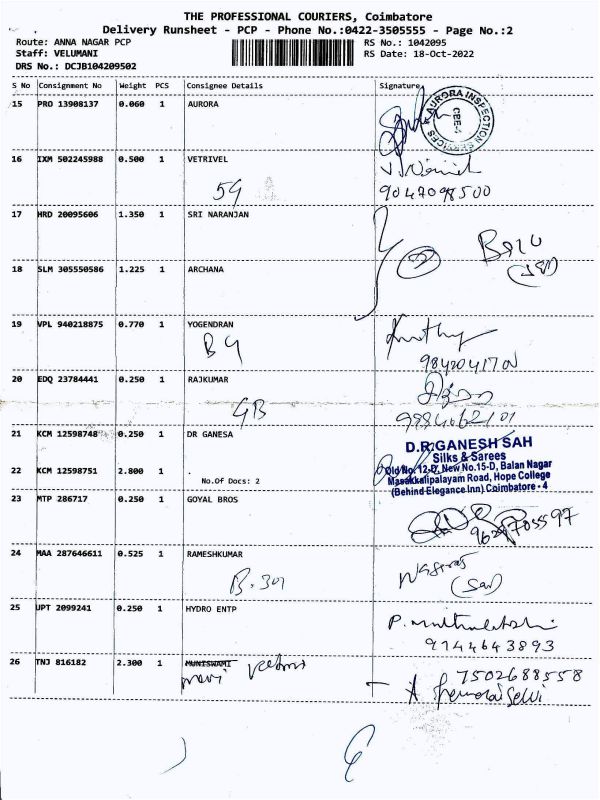 THE PROFESSIONAL COURIERS, Coimbatore
Delivery Runsheet - PCP - Phone No.:0422-3505555 - Page No.:2
Route: ANNA NAGAR PCP
Staff: VELUMANI
DRS No.: DCJB104209502
RS No.: 1042095
RS Date: 18-Oct-2022
S No Consignment No Weight PCS Consignee Details Signature
15 PRO 13908137 0.060 1 AURORA
AURORA INSPECTION SERVICES
CBE-4
16 IXM 502245988 0.500 1 VETRIVEL
59
9047098500
17 HRD 20095606 1.350 1 SRI NARANJAN
18 SLM 305550586 1.225 1 ARCHANA
19 VPL 940218875 0.770 1 YOGENDRAN
B4
20 EDQ 23784441 0.250 1 RAJKUMAR
GB
21 KCM 12598748 0.250 1 DR GANESA
D.R.GANESH SAH
Silks & Sarees
Old No. 12-D, New No.15-D, Balan Nagar
Masakkalipalayam Road, Hope College
(Behind Elegance Inn) Coimbatore - 4
22 KCM 12598751 2.800 1 .
No.Of Docs: 2
23 MTP 286717 0.250 1 GOYAL BROS
24 MAA 287646611 0.525 1 RAMESHKUMAR
B-301
25 UPT 2099241 0.250 1 HYDRO ENTP
9144643893
26 TNJ 816182 2.300 1 MUNISWAMI
7502688558